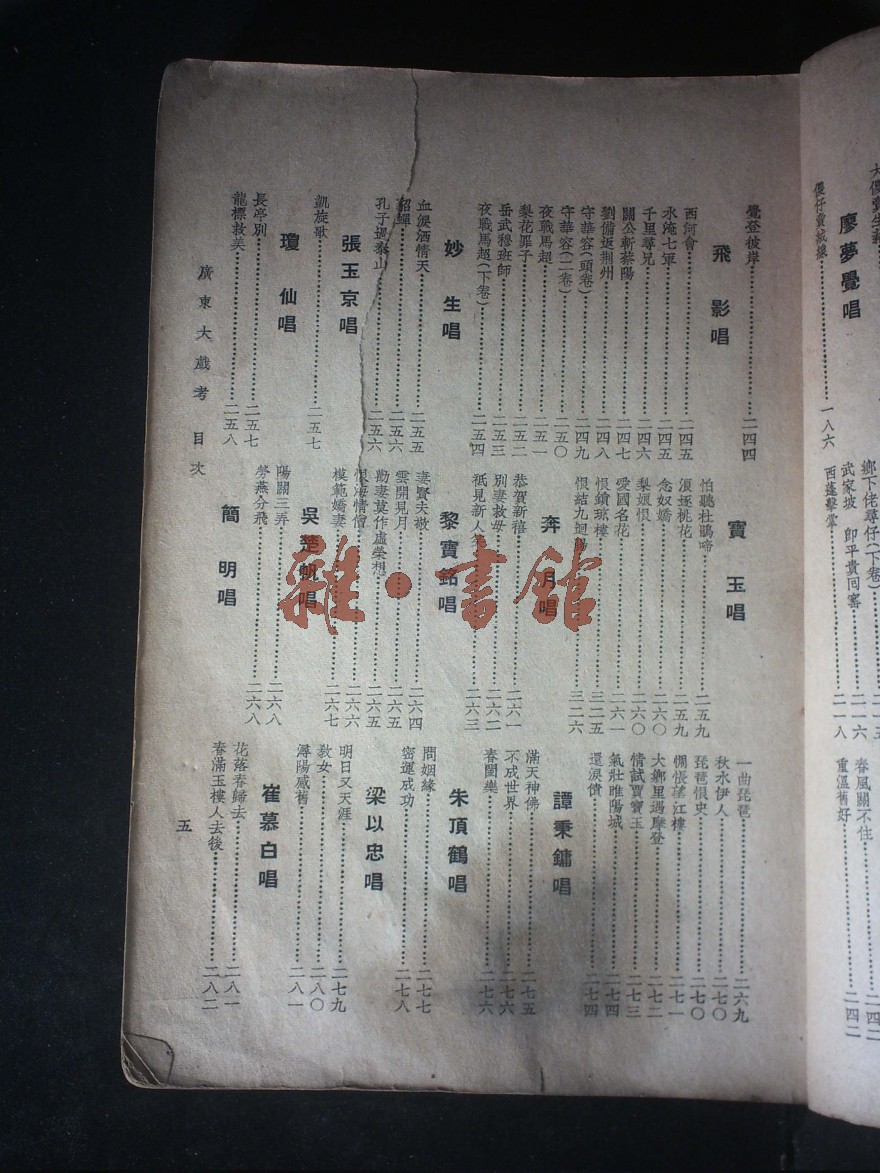 大
廖夢覺唱
一八六
鄉下佬尋仔(下卷)
武家坡　即平貴回窰
二一六
西蓬擊掌
二一八
春風關不住
二四二
重溫舊好
二四二
覺登彼岸 二四四
飛影唱
西河會 二四五
水淹七軍 二四五
千里尋兄 二四六
關公斬蔡陽 二四七
劉備返荆州 二四八
守華容(頭卷) 二四九
守華容(二卷) 二五〇
夜戰馬超 二五一
梨花罪子 二五二
岳武穆班師 二五三
夜戰馬超(下卷) 二五四
妙生唱
血淚洒情天 二五五
貂蟬 二五六
孔子過泰山 二五六
張玉京唱
凱旋歌 二五七
瓊仙唱
長亭別 二五七
龍標救美 二五八
寶玉唱
怕聽杜鵑啼 二五九
浪逐桃花 二五九
念奴嬌 二六〇
梨娘恨 二六〇
愛國名花 二六一
恨鎖瓊樓 三二五
恨結九迴腸 三二六
奔月唱
恭賀新禧 二六一
別妻救母 二六二
祗見新人笑 二六三
黎寶銘唱
妻賢夫敬 二六四
雲開見月 二六五
勸妻莫作虛榮想 二六五
恨海情僧 二六六
模範嬌妻 二六七
吳楚帆唱
陽關三弄 二六八
勞燕分飛 二六八
簡明唱
一曲琵琶 二六九
秋水伊人 二七〇
琵琶恨史 二七〇
惆悵望江樓 二七一
大鄉里過摩登 二七二
情試賈寶玉 二七三
氣壯睢陽城 二七四
還淚債 二七四
譚秉鏞唱
滿天神佛 二七五
不成世界 二七六
春閨樂 二七六
朱頂鶴唱
問姻緣 二七七
密運成功 二七八
梁以忠唱
明日又天涯 二七九
教女 二八〇
潯陽感舊 二八一
崔慕白唱
花落春歸去 二八一
春滿玉樓人去後 二八二
廣東大戲考　目次
五
雅·書館